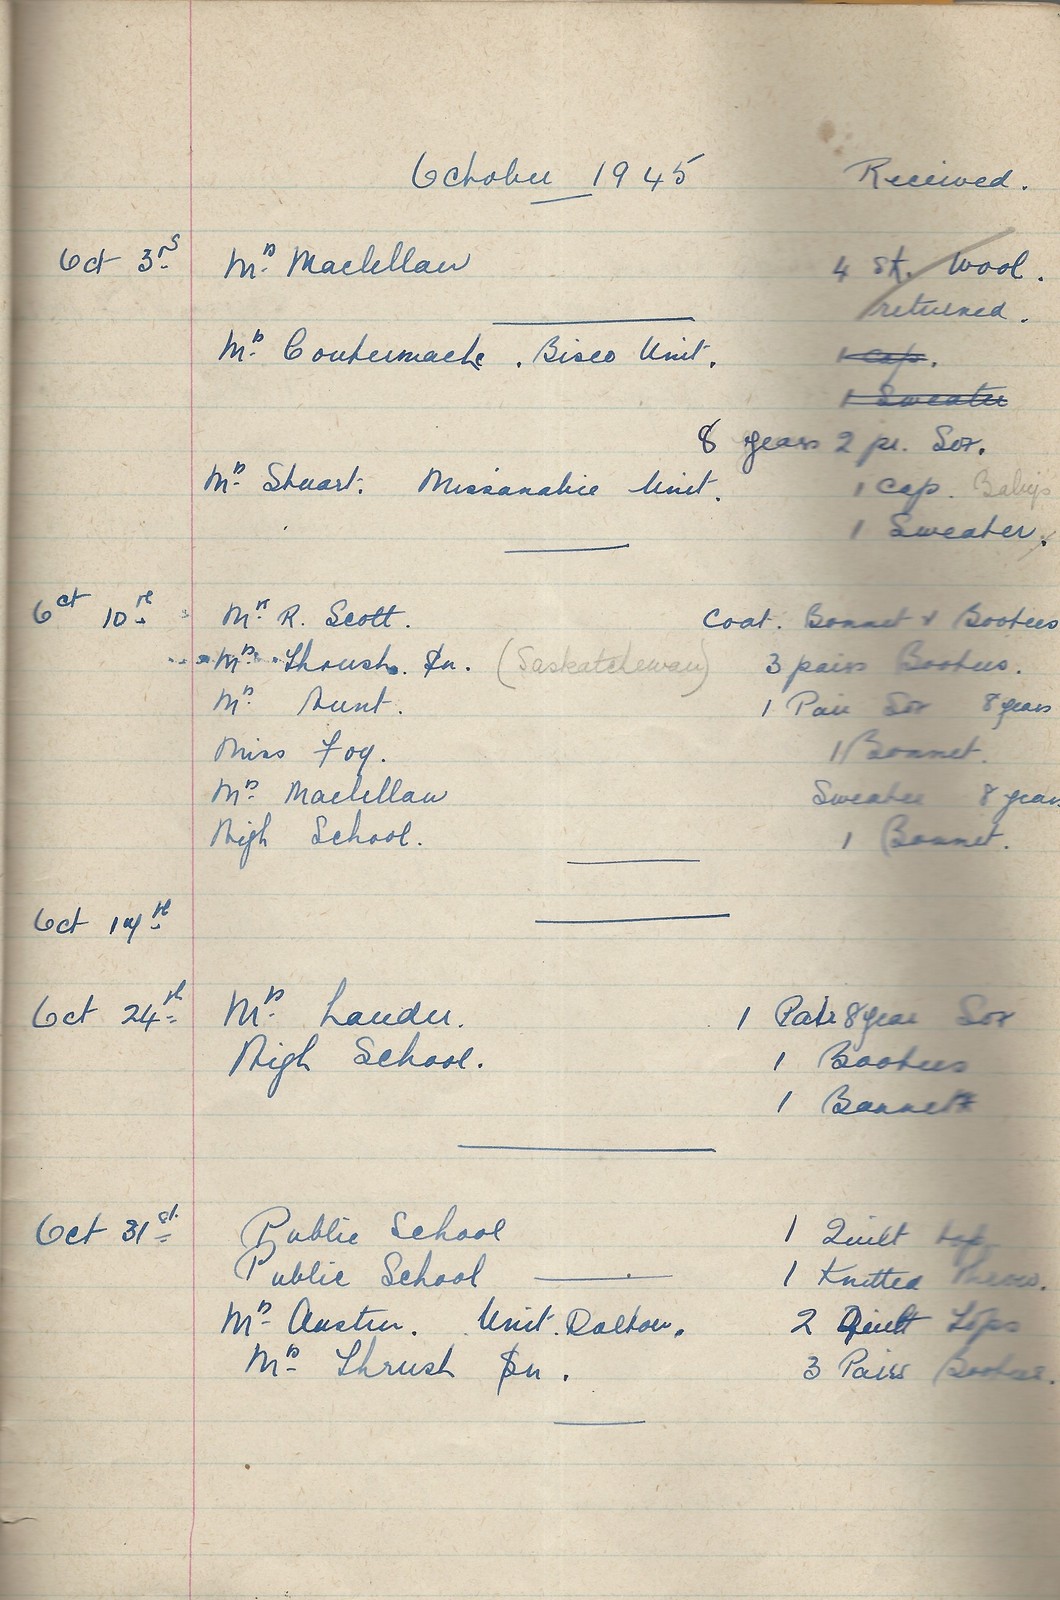 October 1945 Received.
Oct 3rd Mrs Maclellan 4 sk. Wool.
returned.
Mrs Coutermache. Bisco Unit. 1 cap.
1 Sweater
8 years 2 pr. Sox.
Mrs Stuart. Missanabie Unit. 1 Cap. Baby's
1 Sweater.
Oct 10th Mrs R. Scott. Coat. Bonnet & Bootees
Mrs Thrush. Sn. (Saskatchewan) 3 pairs Bootees.
Mrs Hunt. 1 Pair Sox 8 years
Miss Fog. 1 Bonnet.
Mrs Maclellan Sweater 8 years
High School. 1 Bonnet.
Oct 17th
Oct 24th Mrs Lauder. 1 Pair 8 year Sox
High School. 1 Bootees
1 Bonnet
Oct 31st Public School 1 Quilt top
Public School 1 Knitted
Mrs Austin. Unit. Dalton. 2 Quilt Tops
Mrs Thrush Sn. 3 Pairs Bootees.